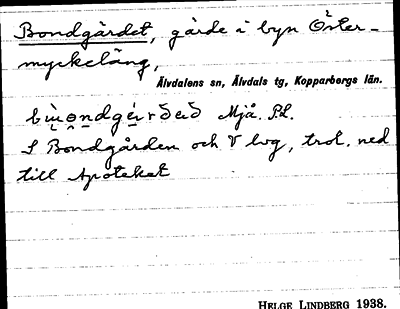 Bondgärdet, gärde i byn Öster-
myckeläng,
Älvdalens sn, Älvdals tg, Kopparbergs län.
Mjå. P.L.
S Bondgården och V lvg, trol. ned
till Apoteket
HELGE LINDBERG 1938.